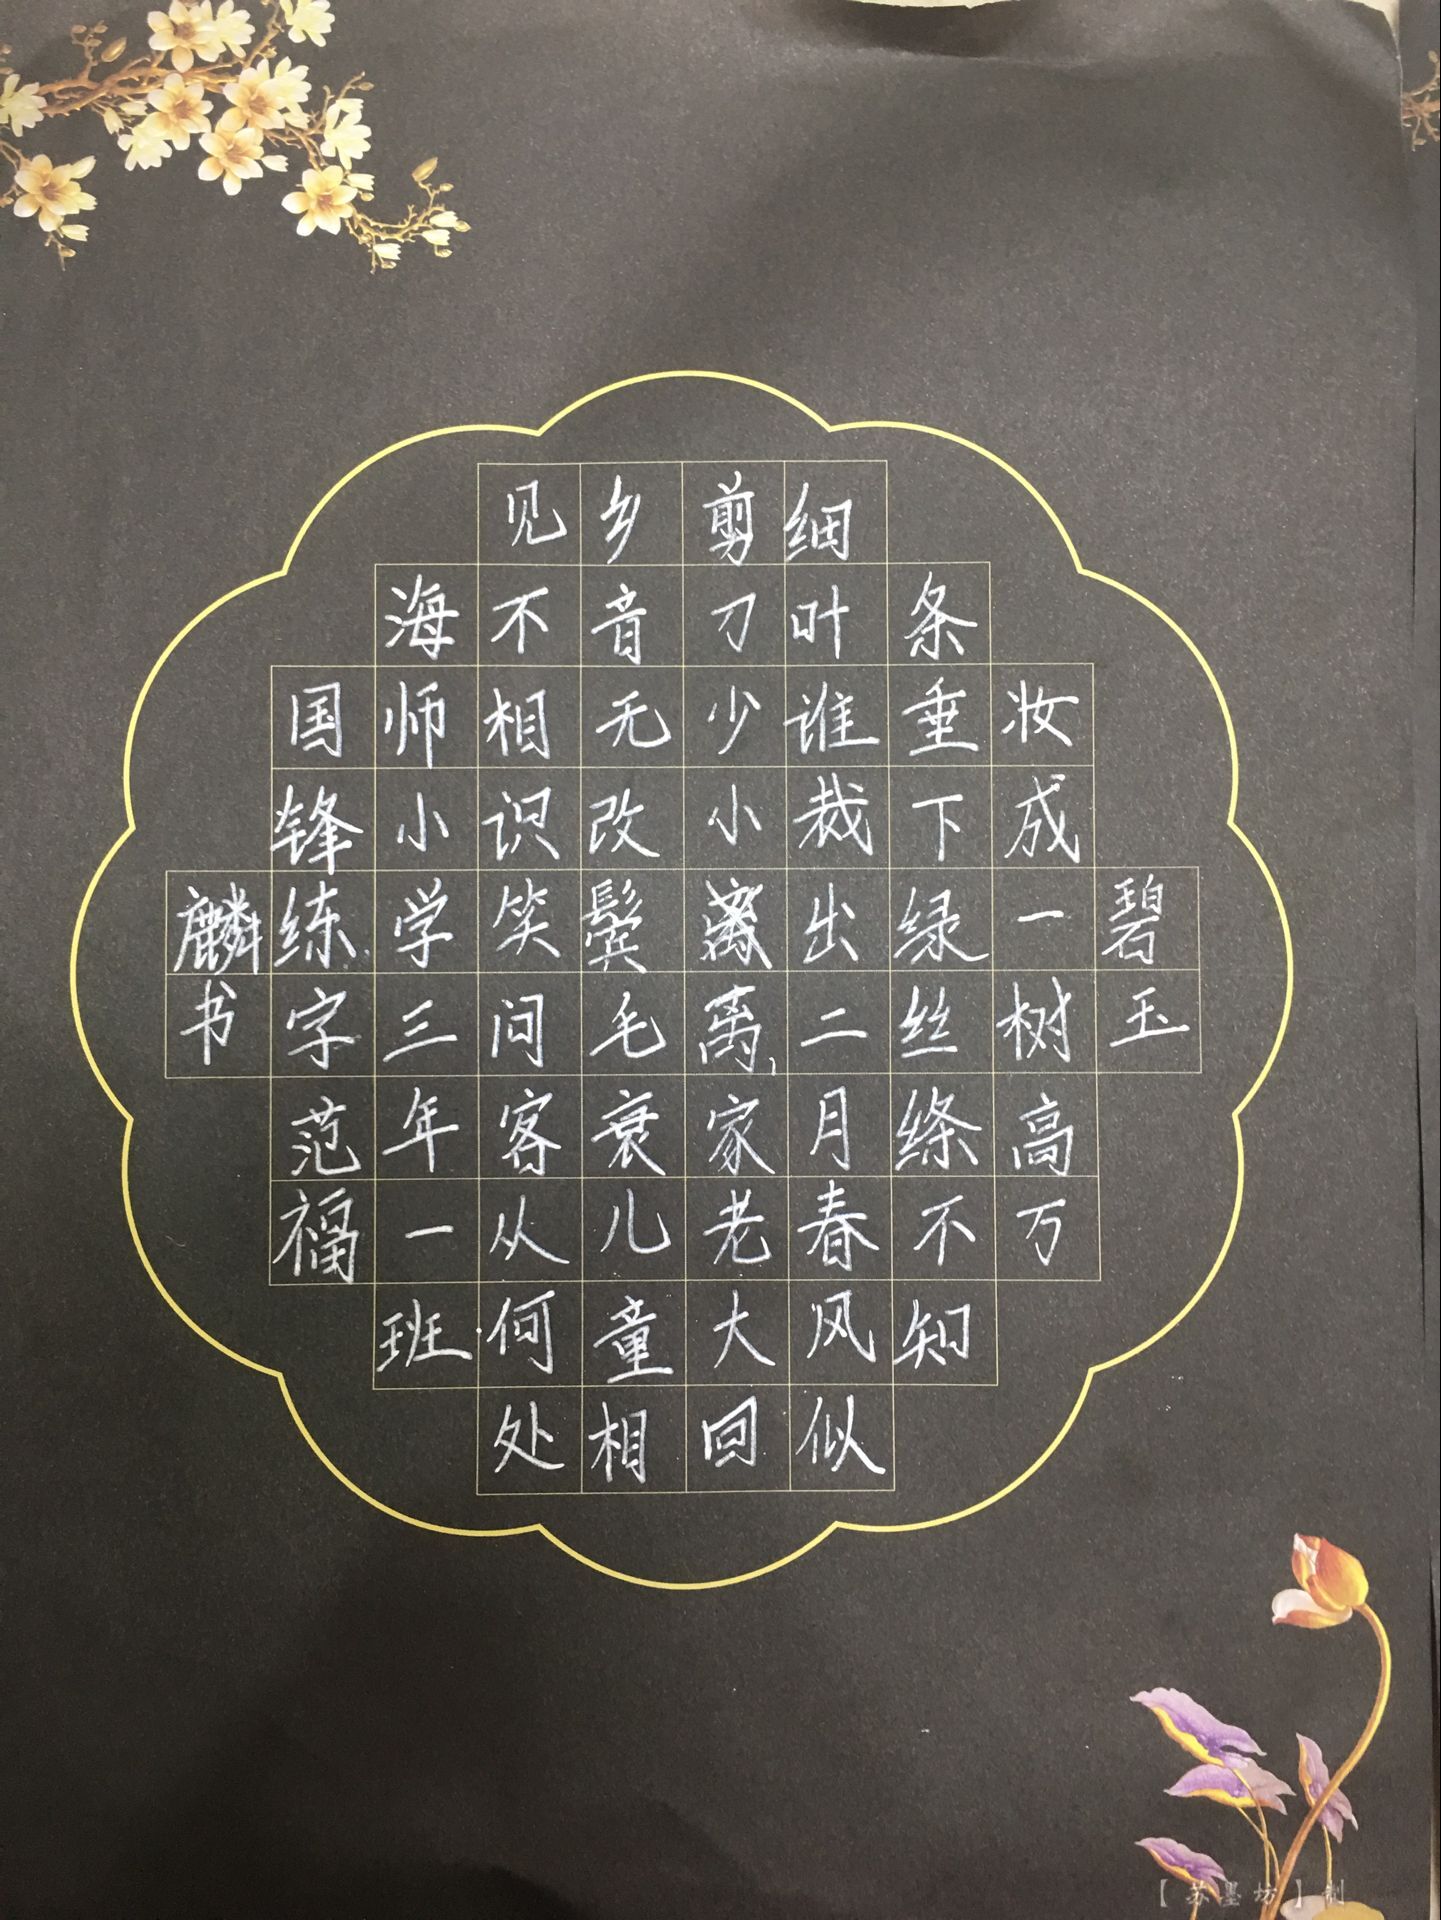 碧玉
妆成一树高万
条垂下绿丝绦不知
细叶谁裁出二月春风似
剪刀少小离家老大回
乡音无改鬓毛衰儿童相
见不相识笑问客从何处
海师小学三年一班
国锋练字范福
麟书
【苏墨坊】制